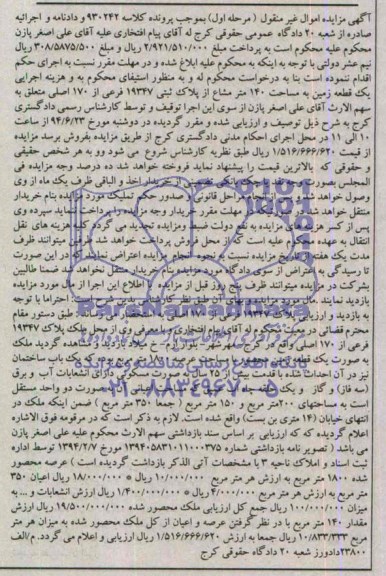 آگهی مزایده اموال غیر منقول ( مرحله اول) بموجب پرونده کلاسه ۹۳۰۲۴۲ و دادنامه و اجرائیه
صادره از شعبه ۲۰ دادگاه عمومی حقوقی کرج له آقای پیام افتخاری علیه آقای علی اصغر پازن
محکوم علیه محکوم است به پرداخت مبلغ ۲/۹۲۱/۵۱۰/۰۰۰ ریال و مبلغ ۳۰۸/۵۸۷۵/۵۰۰ ریال
نیم عشر دولتی با توجه به اینکه به محکوم علیه ابلاغ شده و در مهلت مقرر نسبت به اجرای حکم
اقدام ننموده است بنا به درخواست محکوم له و به منظور استیفای محکوم به و هزینه اجرایی
یک قطعه زمین به مساحت ۱۴۰ متر مشاع از پلاک ثبتی ۱۹۳۴۷ فرعی از ۱۷۰ اصلی متعلق به
سهم الارث آقای علی اصغر پازن از سوی این اجرا توقیف و توسط کارشناس رسمی دادگستری
کرج به شرح ذیل توصیف و ارزیابی شده و مقرر گردیده در دوشنبه مورخ ۹۴/۶/۲۳ از ساعت
۱۰ الی ۱۱ در محل اجرای احکام مدنی دادگستری کرج از طریق مزایده بفروش برسد مزایده
از قیمت ۱/۵۱۶/۶۶۶/۶۲۰ ریال طبق نظریه کارشناس شروع می شود وو به هر شخص حقیقی
و حقوقی که بالاترین قیمت را پیشنهاد نماید فروخته خواهد شد ده درصد وجه مزایده فی
المجلس بصورت از خریدار اخذ و الباقی ظرف یک ماه از وی
وصول خواهد شد مراحل قانونی و صدور حکم تملیک مورد مزایده بنام خریدار
منتقل خواهد شد در مهلت مقرر خریدار وجه مزایده را پرداخت ننماید سپرده وی
پس از کسر هزینه های مزایده به نفع دولت ضبط ومزایده تجدید می گردد کلیه هزینه های نقل
انتقال به عهده محکوم علیه است که از محل فروش پرداخت خواهد شد طرفین میتوانند ظرف
مدت یک هفته از تاریخ مزایده نسبت به نحوه انجام مزایده اعتراض نمایند که در این صورت
تا رسیدگی به اعتراض از سوی دادگاه مورد مزایده بنام خریدار منتقل نخواهد شد ضمنا طالبین
بشرکت در مزایده میتوانند ظرف پنج روز قبل از مزایده با اطلاع این اجرا از مال مورد مزایده
بازدید نمایند مال مورد مزایده و بهای آن طبق نظر کارشناس بدین شرح است: احتراما با توجه
به بازدید و ارزیابی پلاک ۱۹۳۴۷ طبق دستور مقام
محترم قضائی در معیت محکوم له آقای پیام افتخاری و با معرفی وی از محل ملک پلاک ۱۹۳۴۷
فرعی از ۱۷۰ اصلی واقع در کرج مشاهده گردید ملک
به صورت یک قطعه زمین به مساحت عرصه ۱۸۰ متر مربع بوده که یک باب ساختمان
نیز در آن احداث شده با قدمت بیش از ۲۵ سال مسکونی دارای انشعابات آب و برق
(سه فاز) و گاز و یک حلقه چاه بصورت دو واحد مستقل
است به مساحتهای ۲۰۰متر مربع و ۱۵۰ متر مربع ( جمعا ۳۵۰ متر مربع ) ضمن اینکه ملک در
انتهای خیابان (۱۴ متری بن بست) واقع شده است. لازم به ذکر است که در مرقومه فوق الاشاره
اعلام گردیده که که ارزیابی بر اساس سند بازداشتی سهم الارث محکوم علیه علی اصغر پازن
می باشد ( تصویر نامه بازداشتی شماره ۱۳۹۴۰۵۸۳۱۰۱۱۰۰۰۳۷۵ مورخ ۱۳۹۴/۲/۷ توسط اداره
ثبت اسناد و املاک ناحیه ۳ با مشخصات آتی الذکر بازداشت گردیده است ) عرصه محصور
شده ۱۸۰۰ متر مربع به ارزش هر متر مربع ۱۰/۰۰۰/۰۰۰ ریال * ۱۸/۰۰۰/۰۰۰ ریال اعیان ۳۵۰
متر مربع به ارزش هر متر مربع ۴/۰۰۰/۰۰۰ ریال * ۱/۴۰۰/۰۰۰/۰۰۰ ریال ارزش انشعابات و ... به
میزان ۱۰۰/۰۰۰/۰۰۰ ریال جمع کل ارزیابی ملک محصور شده ۱۹/۵۰۰/۰۰۰/۰۰۰ ریال ارزش
مقدار ۱۴۰ متر مربع با در نظر گرفتن عرصه و اعیان از کل ملک محصور شده به میزان هر متر
مربع ۱۰/۸۳۳/۳۳۳ ریال جمعا به ارزش ۱/۵۱۶/۶۶۶/۶۲۰ ریال ارزیابی و اعلام می گردد. م/الف
۲۳۸۰۰دادورز شعبه ۲۰ دادگاه حقوقی کرج
ParsNamadData
پایگاه اطلاع رسانی مناقصه و مزایده
۰۲۱-۸۸۳۴۹۶۷۰-۵